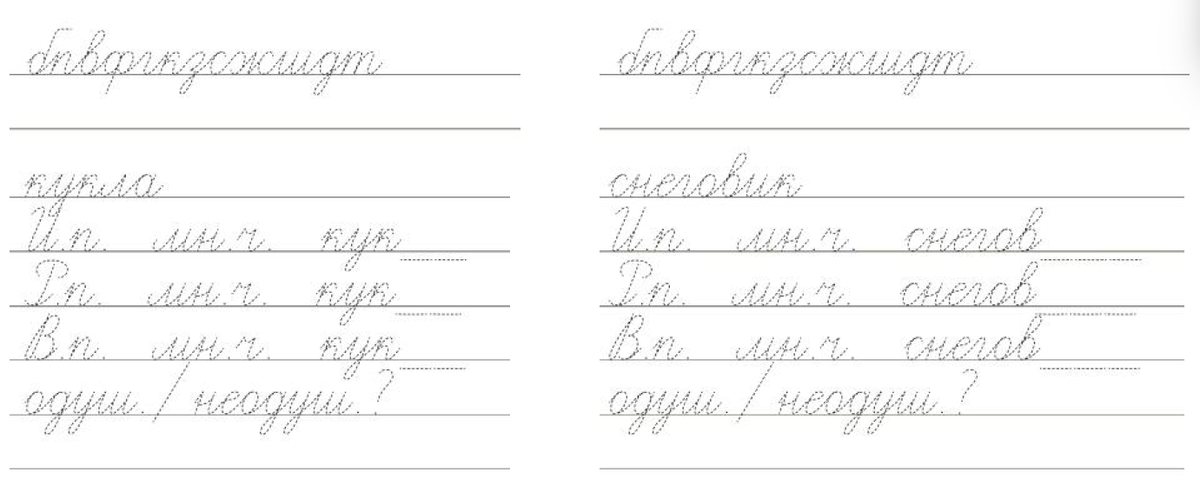 бпвфгкзсжшдт
кукла
И.п. мн.ч. кук______
Р.п. мн.ч. кук______
В.п. мн.ч. кук______
одуш./неодуш.?
бпвфгкзсжшдт
снеговик
И.п. мн.ч. снегов______
Р.п. мн.ч. снегов______
В.п. мн.ч. снегов______
одуш./неодуш.?